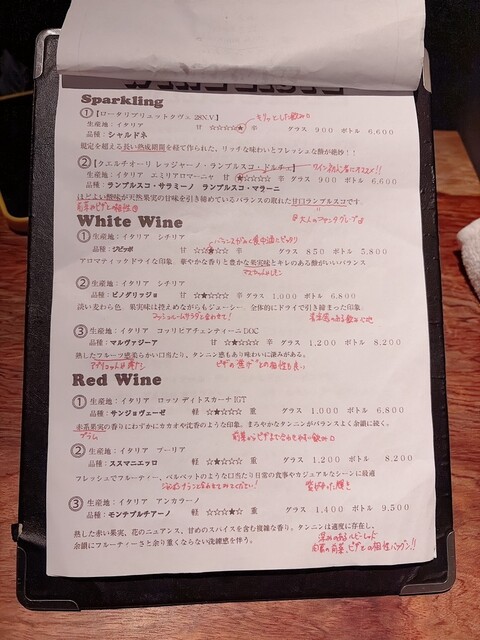 Sparkling
①【ロータリブリュットクヴェ 28X.V.】
生産地：イタリア 甘 ☆☆☆☆★ 辛 グラス 900 ボトル 6,600
品種：シャルドネ
規定を超える長い熟成期間を経て作られた、リッチな味わいとフレッシュな酸が絶妙！！
②【クエルチオーリ レッジャーノ・ランブルスコ・ドルチェ】 ワイン初心者にオススメ!!
生産地：イタリア エミリアロマーニャ 甘 ★☆☆☆☆ 辛 グラス 900 ボトル 6,600
品種：ランブルスコ・サラミーノ ランブルスコ・マラーニ
ほどよい酸味が天然果実の甘味を引き締めているバランスの取れた甘口ランブルスコです。
大人のファンタグレープ
White Wine
①生産地：イタリア シチリア
品種：ジビッボ 甘 ☆☆★☆☆ 辛 グラス 850 ボトル 5,800
アロマティックドライな印象 華やかな香りと豊かな果実味とキレのある酸がいいバランス
②生産地：イタリア シチリア
品種：ピノグリッジョ 甘 ☆☆★☆☆ 辛 グラス 1,000 ボトル 6,800
淡い麦わら色 果実味は控えめながらもジューシー 全体的にドライで引き締まった印象
③生産地：イタリア コッリピアチェンティーニDOC
品種：マルヴァジーア 甘 ☆☆★☆☆ 辛 グラス 1,200 ボトル 8,200
熟したフルーツ感柔らかい口当たり。タンニン感もあり味わいに深みがある。
ピザの"焦げ"との相性も良い
Red Wine
①生産地：イタリア ロッソ ディトスカーナIGT
品種：サンジョヴェーゼ 軽 ☆☆★☆☆ 重 グラス 1,000 ボトル 6,800
赤系果実の香りにわずかにカカオや沈香のような印象。まろやかなタンニンがバランスよく余韻に続く。
プラム
②生産地：イタリア プーリア
品種：ススマニエッロ 軽 ☆☆★☆☆ 重 グラス 1,200 ボトル 8,200
フレッシュでフルーティー、ベルベットのような口当たり日常の食事やカジュアルなシーンに最適
③生産地：イタリア アンカラーノ
品種：モンテプルチアーノ 軽 ☆☆☆★☆ 重 グラス 1,400 ボトル 9,500
熟した赤い果実、花のニュアンス、甘めのスパイスを含む複雑な香り。タンニンは適度に存在し、
余韻にフルーティーさと余り重くならない洗練感を伴う。